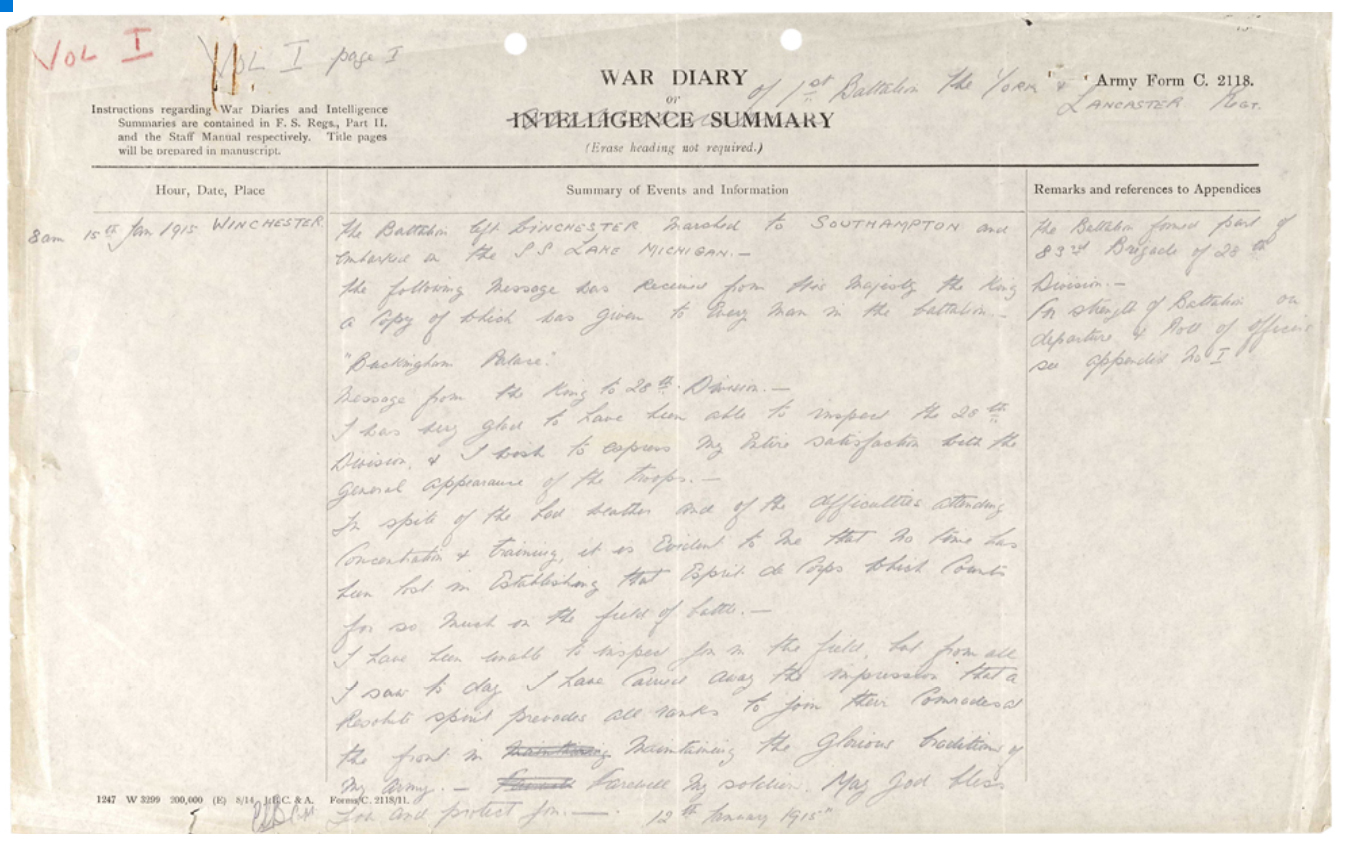 VOL I
VOL I page I
WAR DIARY
or
INTELLIGENCE SUMMARY
(Erase heading not required.)
of 1st Battalion the YORK &
LANCASTER Regt.
Army Form C. 2118.
Instructions regarding War Diaries and Intelligence
Summaries are contained in F. S. Regs., Part II.
and the Staff Manual respectively. Title pages
will be prepared in manuscript.
Hour, Date, Place
Summary of Events and Information
Remarks and references to Appendices
8am 15th Jan 1915 WINCHESTER.
The Battalion left WINCHESTER marched to SOUTHAMPTON and
embarked on the SS LAKE MICHIGAN. —
The following message was received from His Majesty the King
a copy of which was given to every man in the battalion. —
"Buckingham Palace.
Message from the King to 28th Division. —
I was very glad to have been able to inspect the 28th
Division, & I wish to express my entire satisfaction with the
general appearance of the troops. —
In spite of the bad weather and of the difficulties attending
concentration & training, it is evident to me that no time has
been lost in establishing that Esprit de Corps which counts
for so much on the field of battle. —
I have been unable to inspect you in the field, but from all
I saw to day I have carried away the impression that a
resolute spirit prevades all ranks to join their comrades at
the front in maintaining the glorious traditions of
my army. — Farewell my soldiers. May God bless
you and protect you. — 12th January 1915"
The Battalion formed part of
83rd Brigade of 28th
Division. —
For strength of Battalion on
departure & Roll of officers
see appended No I
1247 W 3299 200,000 (E) 8/14 J.B.C. & A. Forms/C. 2118/11.